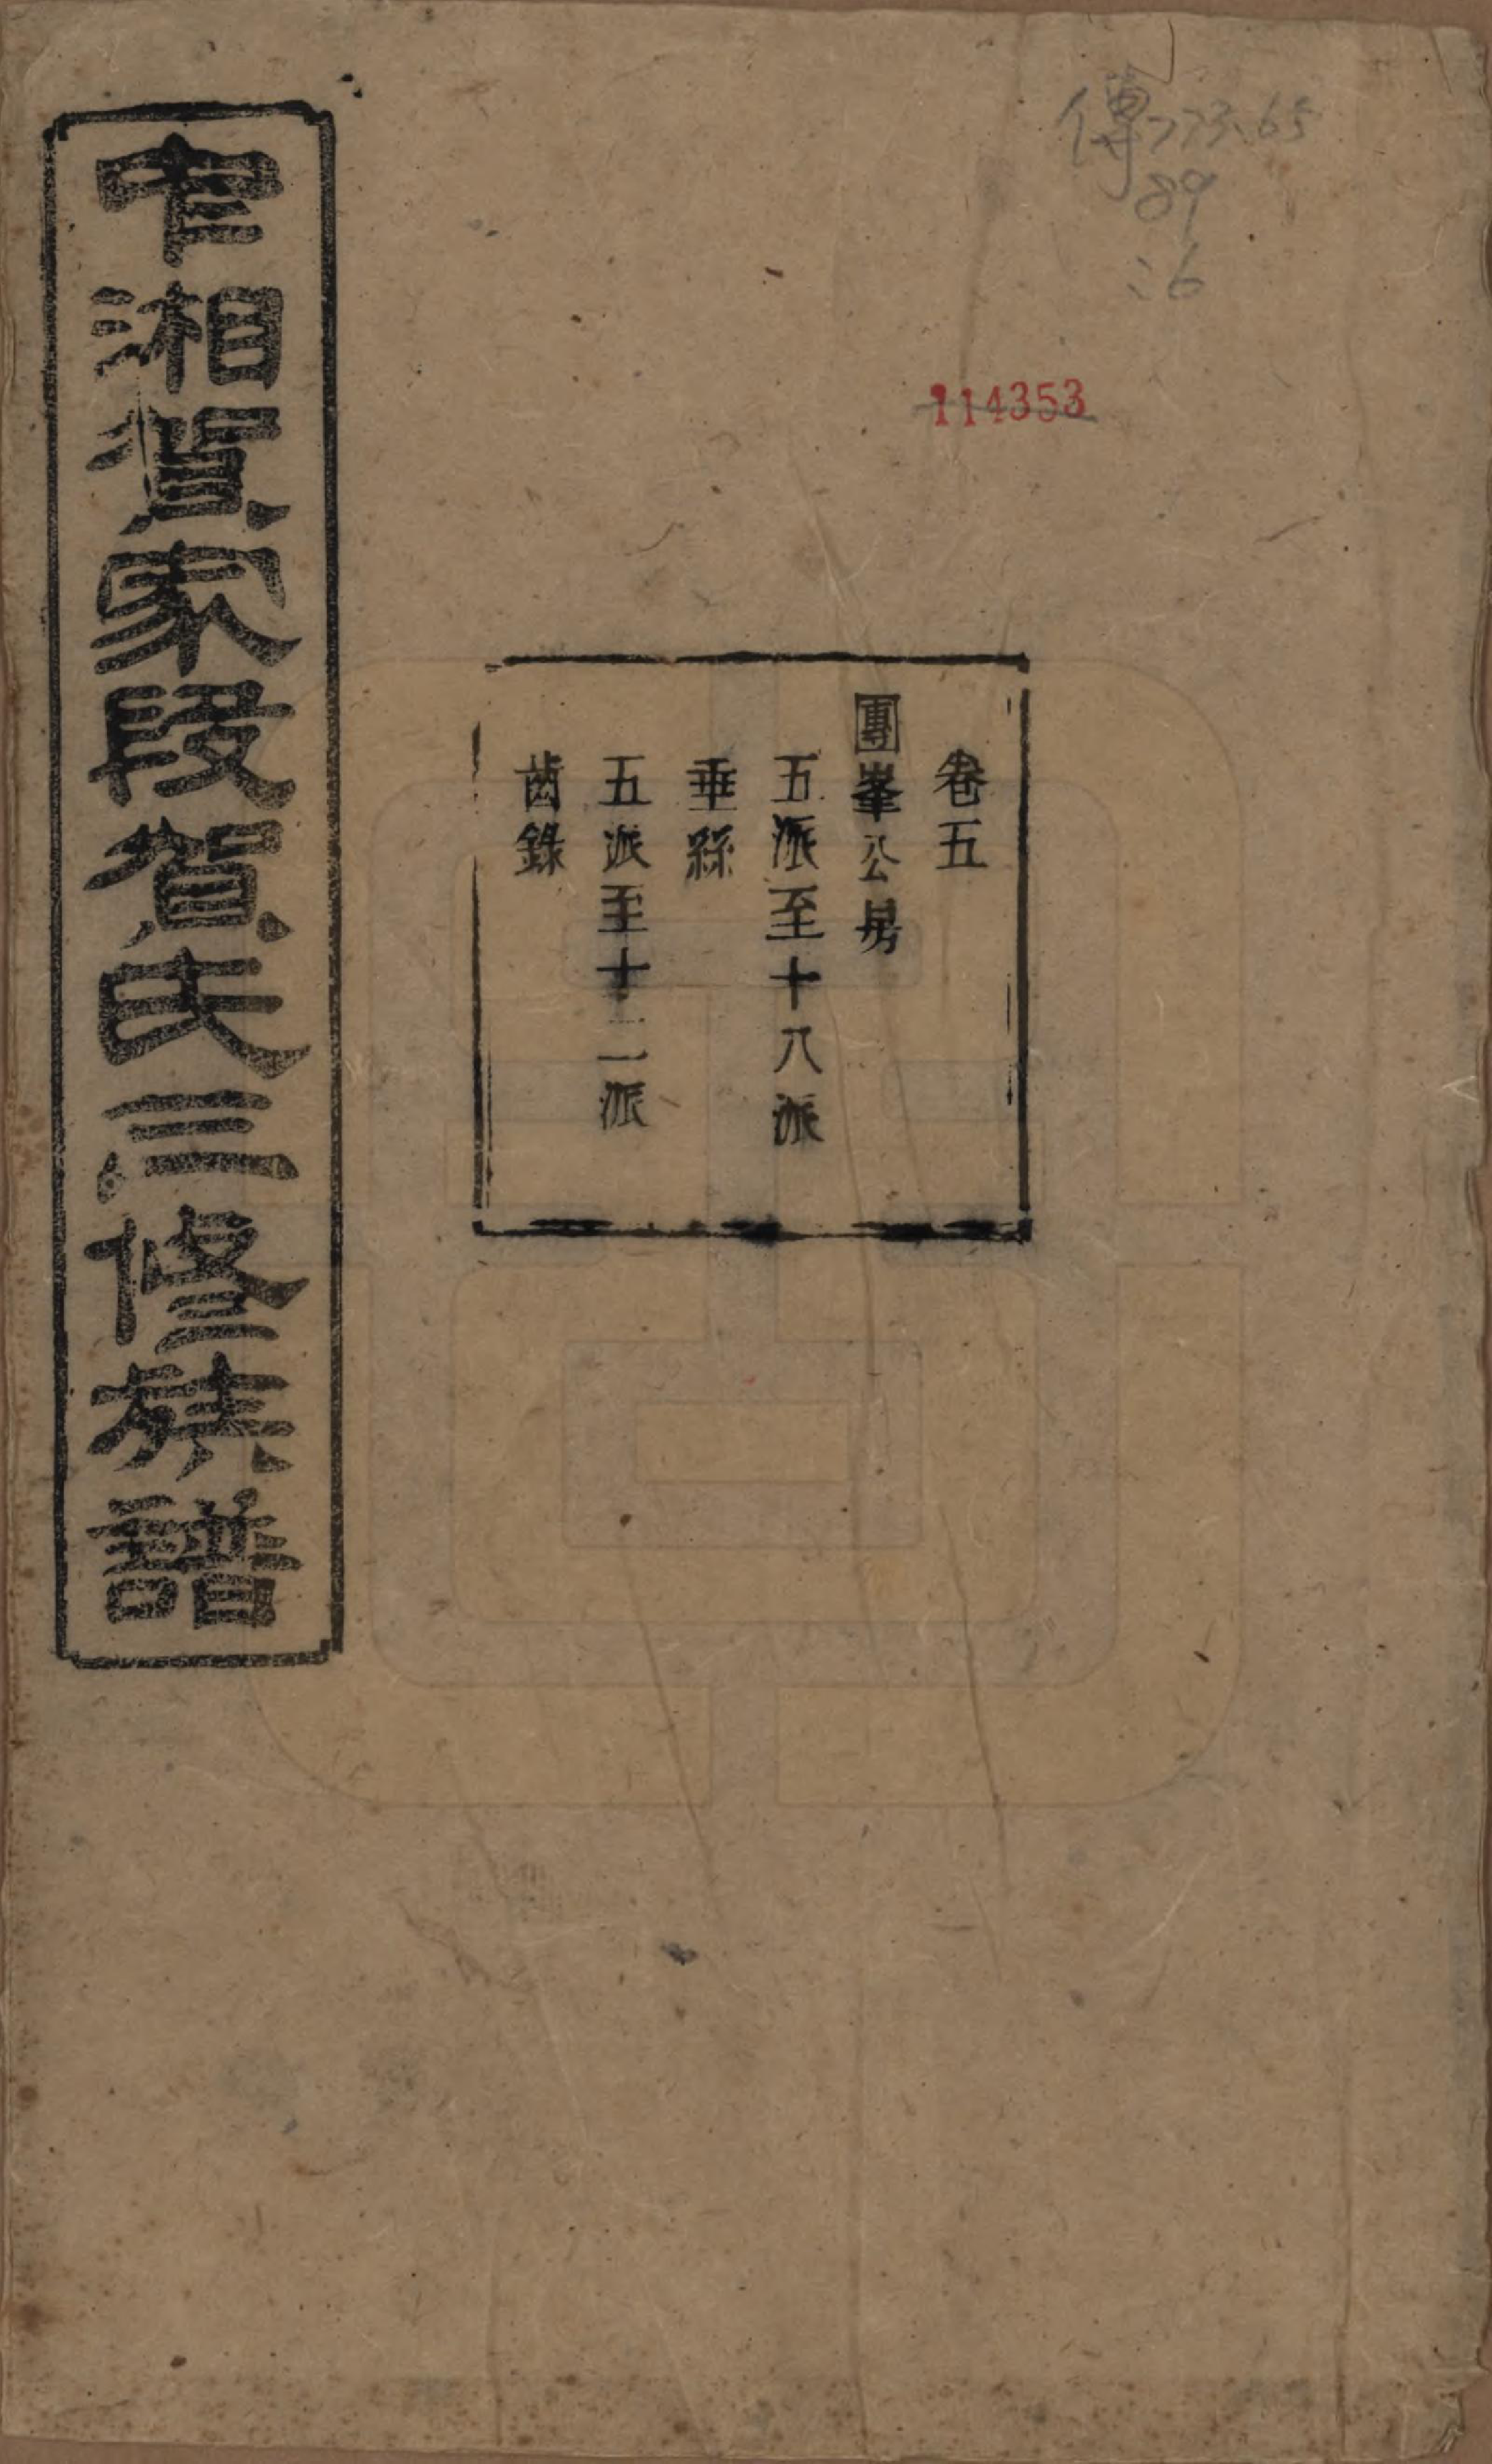 傳773.65
89
:6
114353
卷五
團峯公房
五派至十八派
垂絲
五派至十二派
齒錄
甯湘賀家段賀氏三修族譜